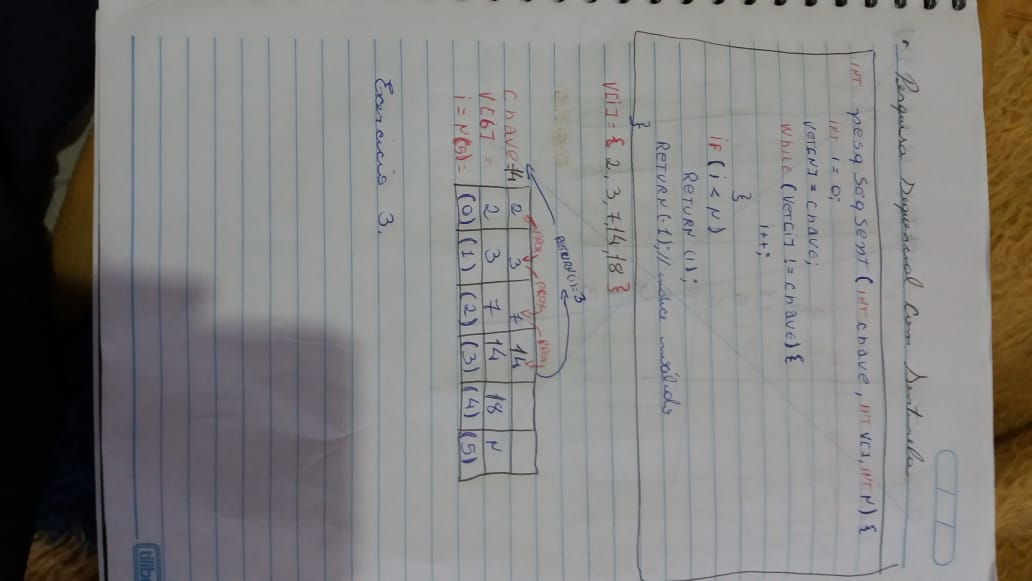 Pesquisa Sequencial Com Sentinela
INT pesqSeqSent (INT chave, INT V[], INT N) {
INT i = 0;
Vet[N] = chave;
while (Vet[i] != chave) {
i++;
}
if (i < N)
Return (i);
Return (-1); // indice inválido
}
V[i] = { 2, 3, 7, 14, 18 }
Return(i) = 3
PROX PROX PROX
chave = 14 2 3 7 14
V[6] = 2 3 7 14 18 N
i = N(5) = (0) (1) (2) (3) (4) (5)
Exercicio 3.